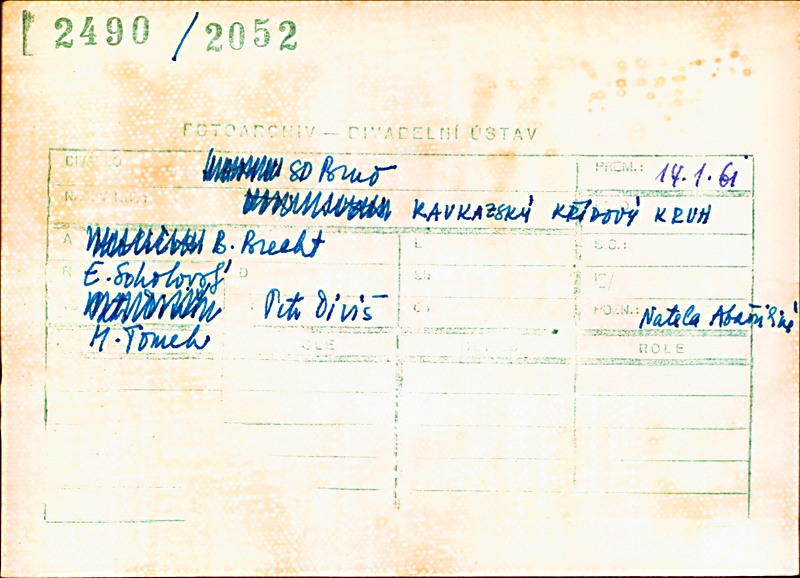 2490 / 2052
FOTOARCHIV — DIVADELNÍ ÚSTAV
DIVADLO SD Brno PREM.: 14.1.61
KAVKAZSKÝ KŘÍDOVÝ KRUH
A B. Brecht L S.C.:
R E. Sokolovský D
Petr Diviš POZN.: Natela Abašvili
M. Tomek
ROLE